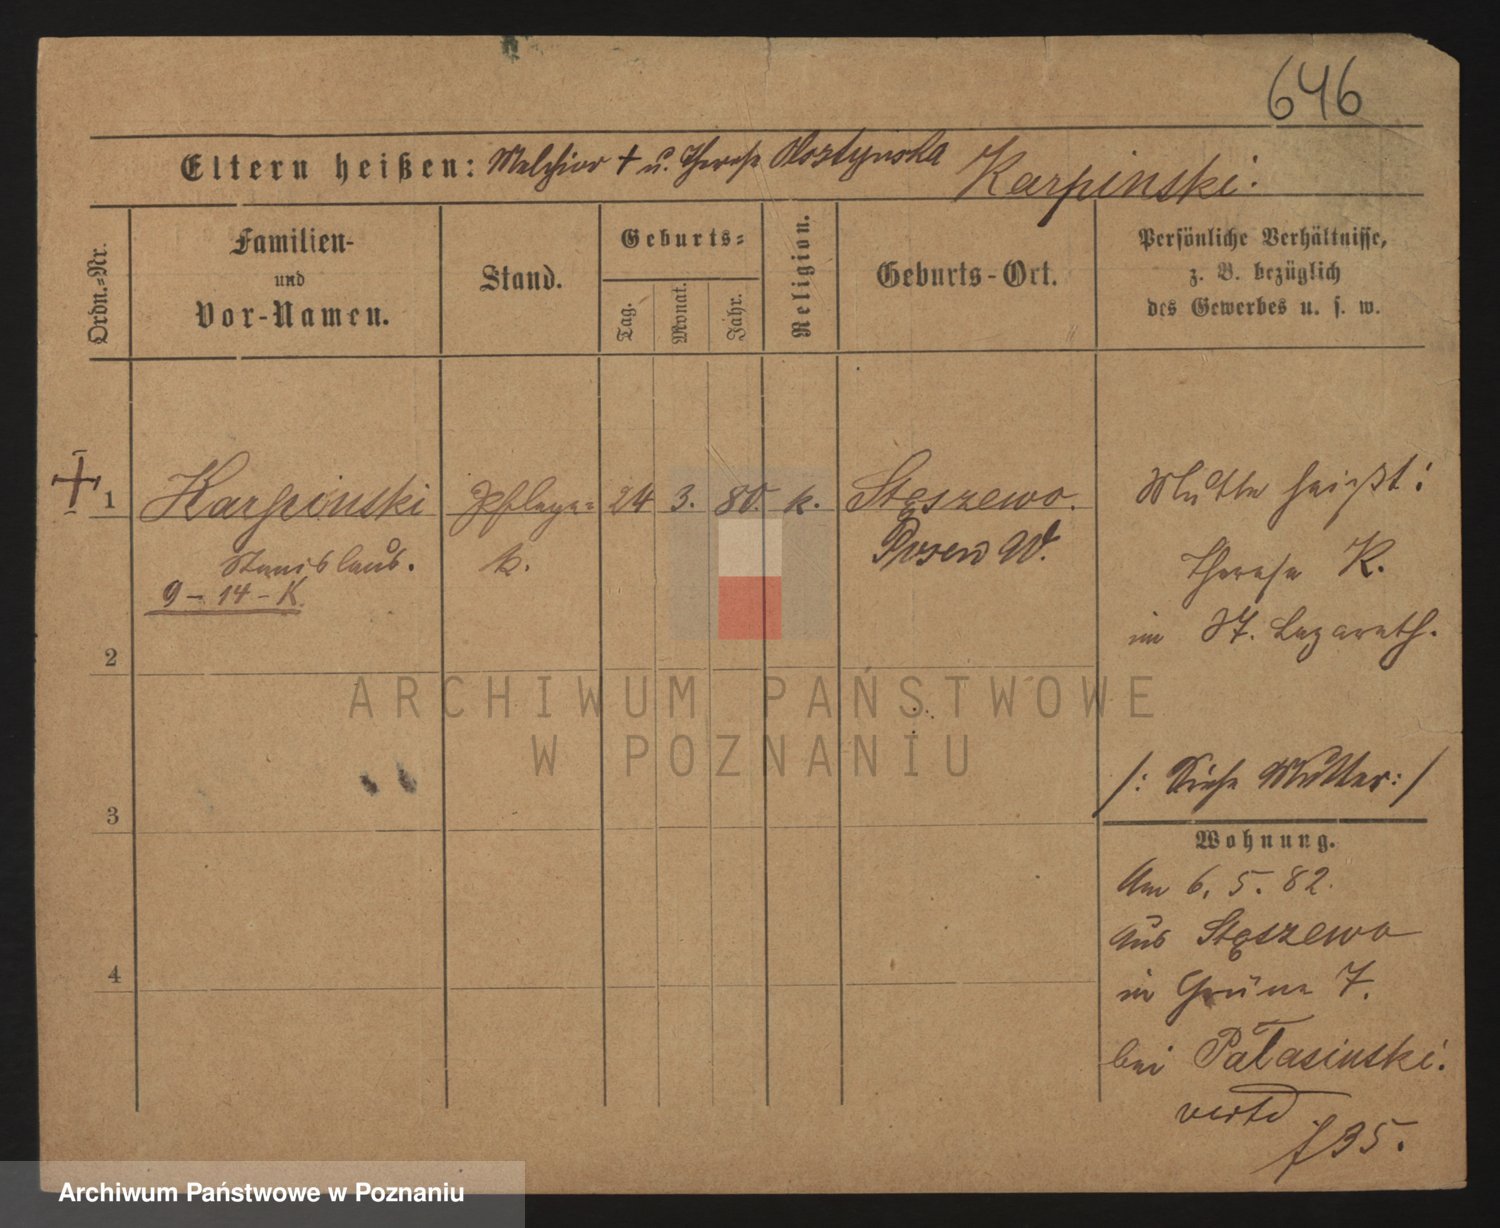 646
Eltern heißen: Melchior † u. Therese Olsztynska Karpinski.
Ordn.-Nr.
Familien-
und
Vor-Namen.
Stand.
Geburts-
Tag.
Monat.
Jahr.
Religion.
Geburts-Ort.
Persönliche Verhältnisse,
z. B. bezüglich
des Gewerbes u. s. w.
1 Karpinski Pflege- 24 3. 80. k. Stęszewo.
Stanislaus. k. Posen W.
9 - 14 - K
Mutter heißt:
Therese K.
im St. Lazareth.
2
/: Siehe Mutter :/
3
Wohnung.
Am 6. 5. 82.
aus Stęszewo
in Grüne 7.
bei Pałasinski.
verte
4
f 35.
ARCHIWUM PAŃSTWOWE
W POZNANIU
Archiwum Państwowe w Poznaniu